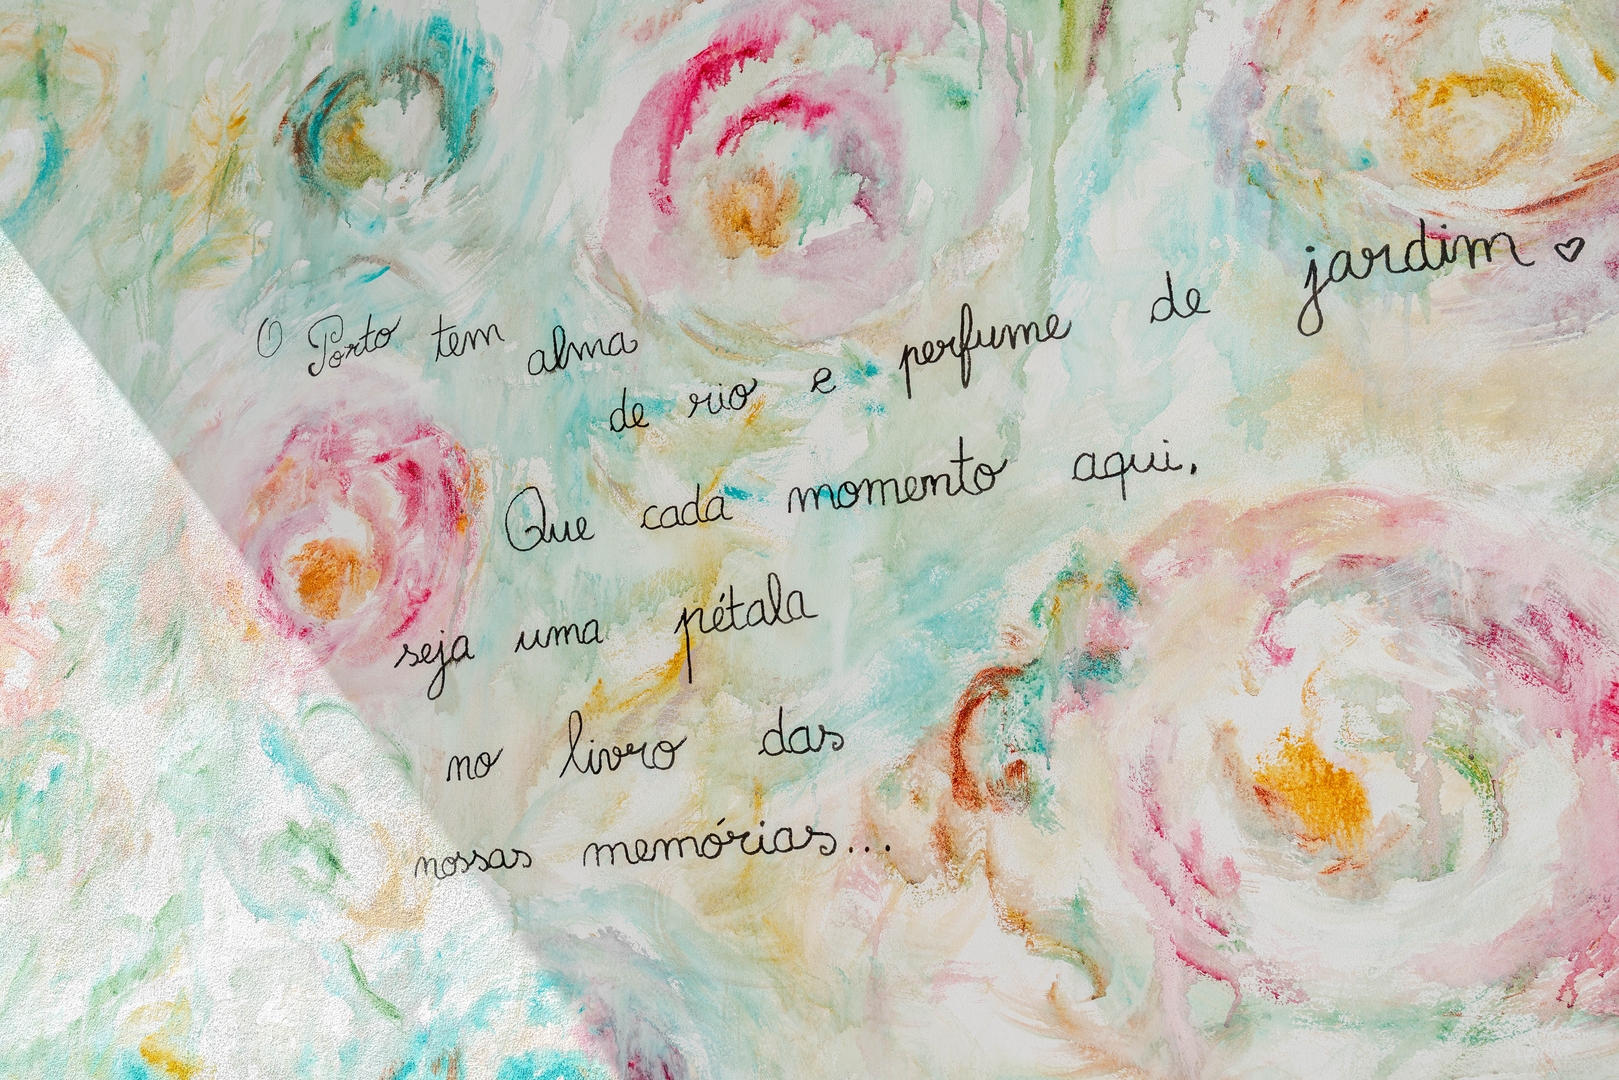 O Porto tem alma
de rio e perfume de jardim ♡
Que cada momento aqui,
seja uma pétala
no livro das
nossas memórias...